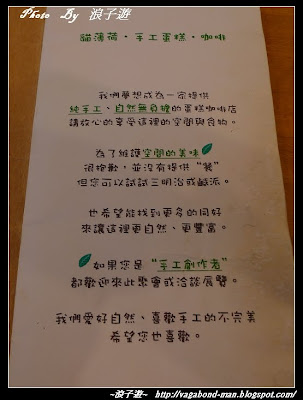 Photo By 浪子遊
貓薄荷・手工蛋糕・咖啡
我們夢想成為一家提供
純手工、自然無負擔的蛋糕咖啡店
請放心的享受這裡的空間與食物。
為了維護空間的美味
很抱歉，並沒有提供“餐”
但您可以試試三明治或鹹派。
也希望能找到更多的同好
來讓這裡更自然、更豐富。
如果您是“手工創作者”
都歡迎來此聚會或洽談展覽。
我們愛好自然、喜歡手工的不完美
希望您也喜歡。
~浪子遊~ http://vagabond-man.blogspot.com/